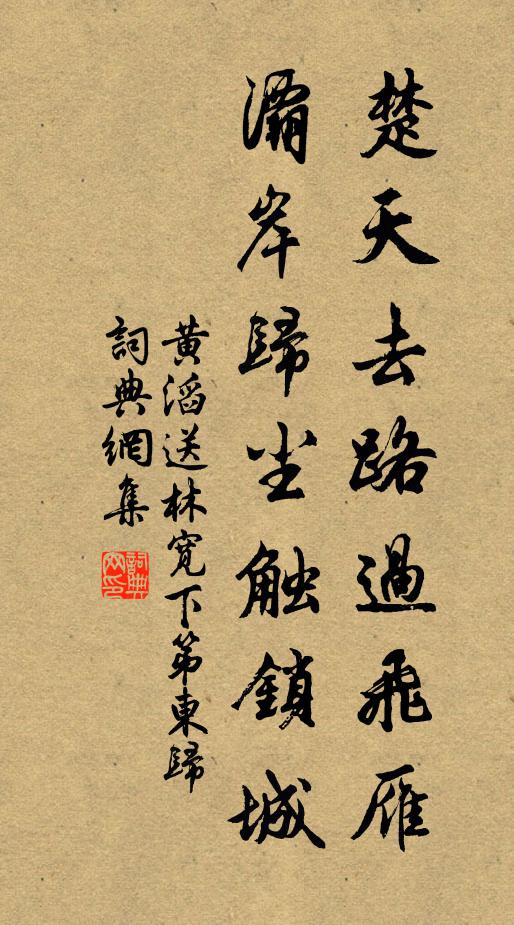 楚天去路過飛雁
灞岸歸尘触鎖城
黃滔送林寬下第東歸
詞典網集
詞典
网印